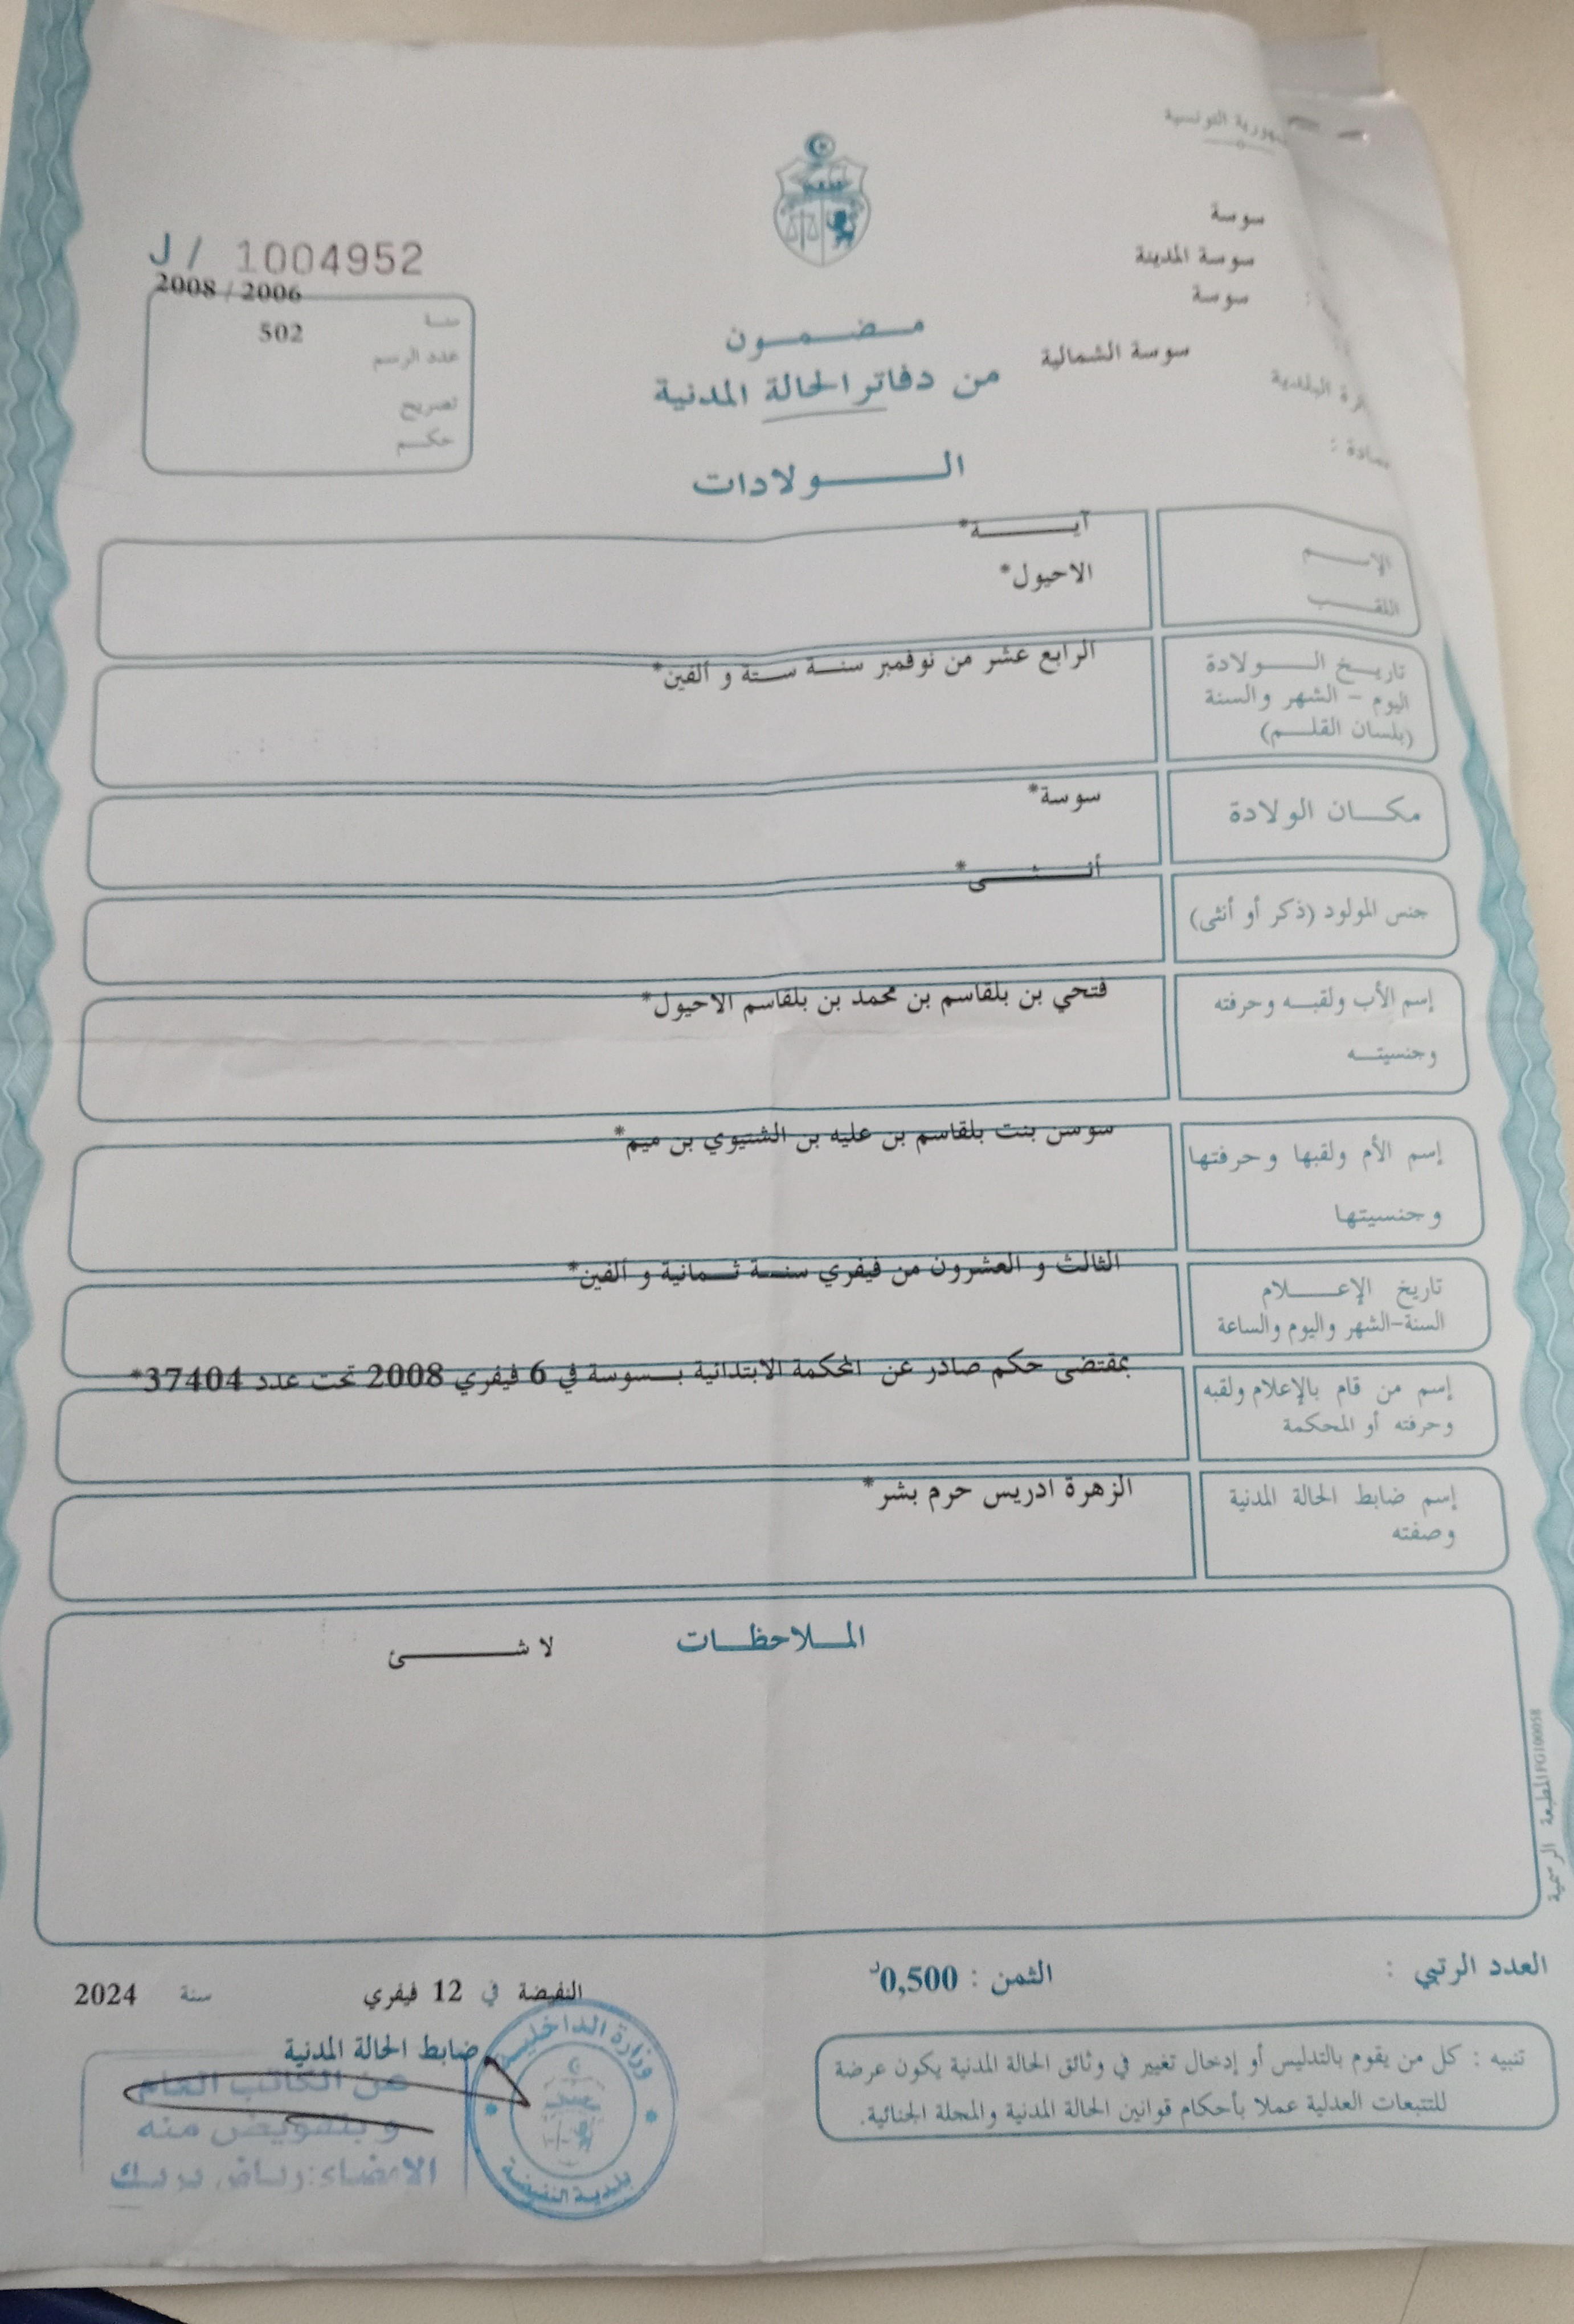 الجمهورية التونسية
سوسة
سوسة المدينة
سوسة
الدائرة البلدية
سوسة الشمالية
J / 1004952
2008 / 2006
سنة
502
عدد الرسم
تصريح
حكم
مضمون
من دفاتر الحالة المدنية
الولادات
الإسم
آية*
اللقب
الاحيول*
تاريخ الولادة
اليوم – الشهر والسنة
(بلسان القلم)
الرابع عشر من نوفمبر سنة ستة و ألفين*
مكان الولادة
سوسة*
جنس المولود (ذكر أو أنثى)
أنثى*
إسم الأب ولقبه وحرفته
وجنسيته
فتحي بن بلقاسم بن محمد بن بلقاسم الاحيول*
إسم الأم ولقبها وحرفتها
وجنسيتها
سوسن بنت بلقاسم بن عليه بن الشتيوي بن ميم*
تاريخ الإعلام
السنة-الشهر واليوم والساعة
الثالث و العشرون من فيفري سنة ثمانية و ألفين*
إسم من قام بالإعلام ولقبه
وحرفته أو المحكمة
بمقتضى حكم صادر عن المحكمة الابتدائية بسوسة في 6 فيفري 2008 تحت عدد 37404*
إسم ضابط الحالة المدنية
وصفته
الزهرة ادريس حرم بشر*
الملاحظات
لا شئ
المطبعة الرسمية PG100058
العدد الرتبي :
الثمن : 0,500د
النفيضة في 12 فيفري سنة 2024
ضابط الحالة المدنية
عن الكاتب العام
وبتفويض منه
الامضاء: رياض بريك
وزارة الداخلية
بلدية النفيضة
تنبيه : كل من يقوم بالتدليس أو إدخال تغيير في وثائق الحالة المدنية يكون عرضة
للتتبعات العدلية عملا بأحكام قوانين الحالة المدنية والمجلة الجنائية.